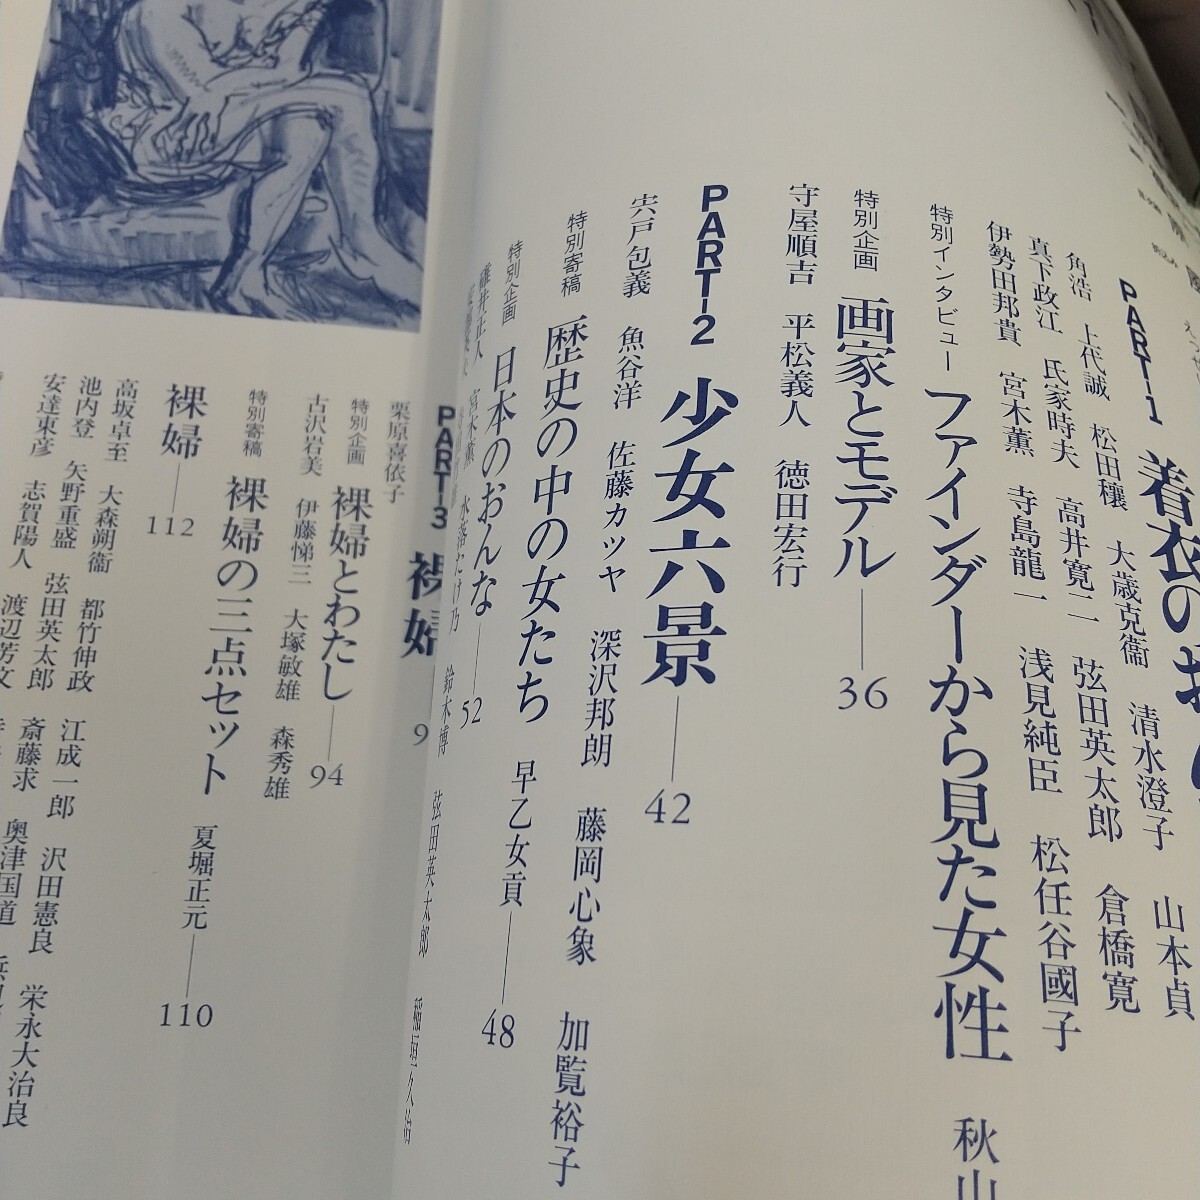 PART-1 着衣の
角浩 上代誠 松田穰 大歳克衞 清水澄子 山本貞
真下政江 氏家時夫 高井寛二 弦田英太郎 倉橋寛
伊勢田邦貴 宮木薫 寺島龍一 浅見純臣 松任谷國子
特別インタビュー ファインダーから見た女性 秋山
特別企画 画家とモデル——36
守屋順吉 平松義人 徳田宏行
PART-2 少女六景——42
宍戸包義 魚谷洋 佐藤カツヤ 深沢邦朗 藤岡心象 加覧裕子
特別寄稿 歴史の中の女たち 早乙女貢——48
特別企画 日本のおんな——52
宮木薫 水落たけ乃 鈴木博 弦田英太郎 稲垣久治
PART-3 裸婦 9
栗原喜依子
特別企画 裸婦とわたし——94
古沢岩美 伊藤悌三 大塚敏雄 森秀雄
特別寄稿 裸婦の三点セット 夏堀正元——110
裸婦——112
高坂卓至 大森朔衞 都竹伸政 江成一郎 沢田憲良 栄永大治良
池内登 矢野重盛 弦田英太郎 斎藤求 奥津国道
安達東彦 志賀陽人 渡辺芳文